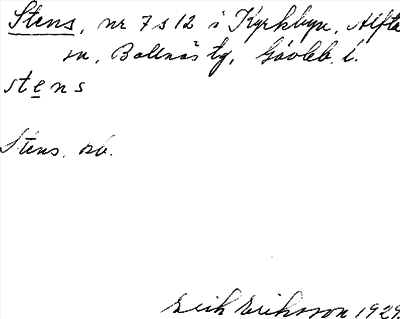 Stens, nr 7 & 12 i Kyrkbyn, Alfta
sn, Bollnäs tg, Gävleb. l.
stens
Stens, ob.
Erik Eriksson 1929.